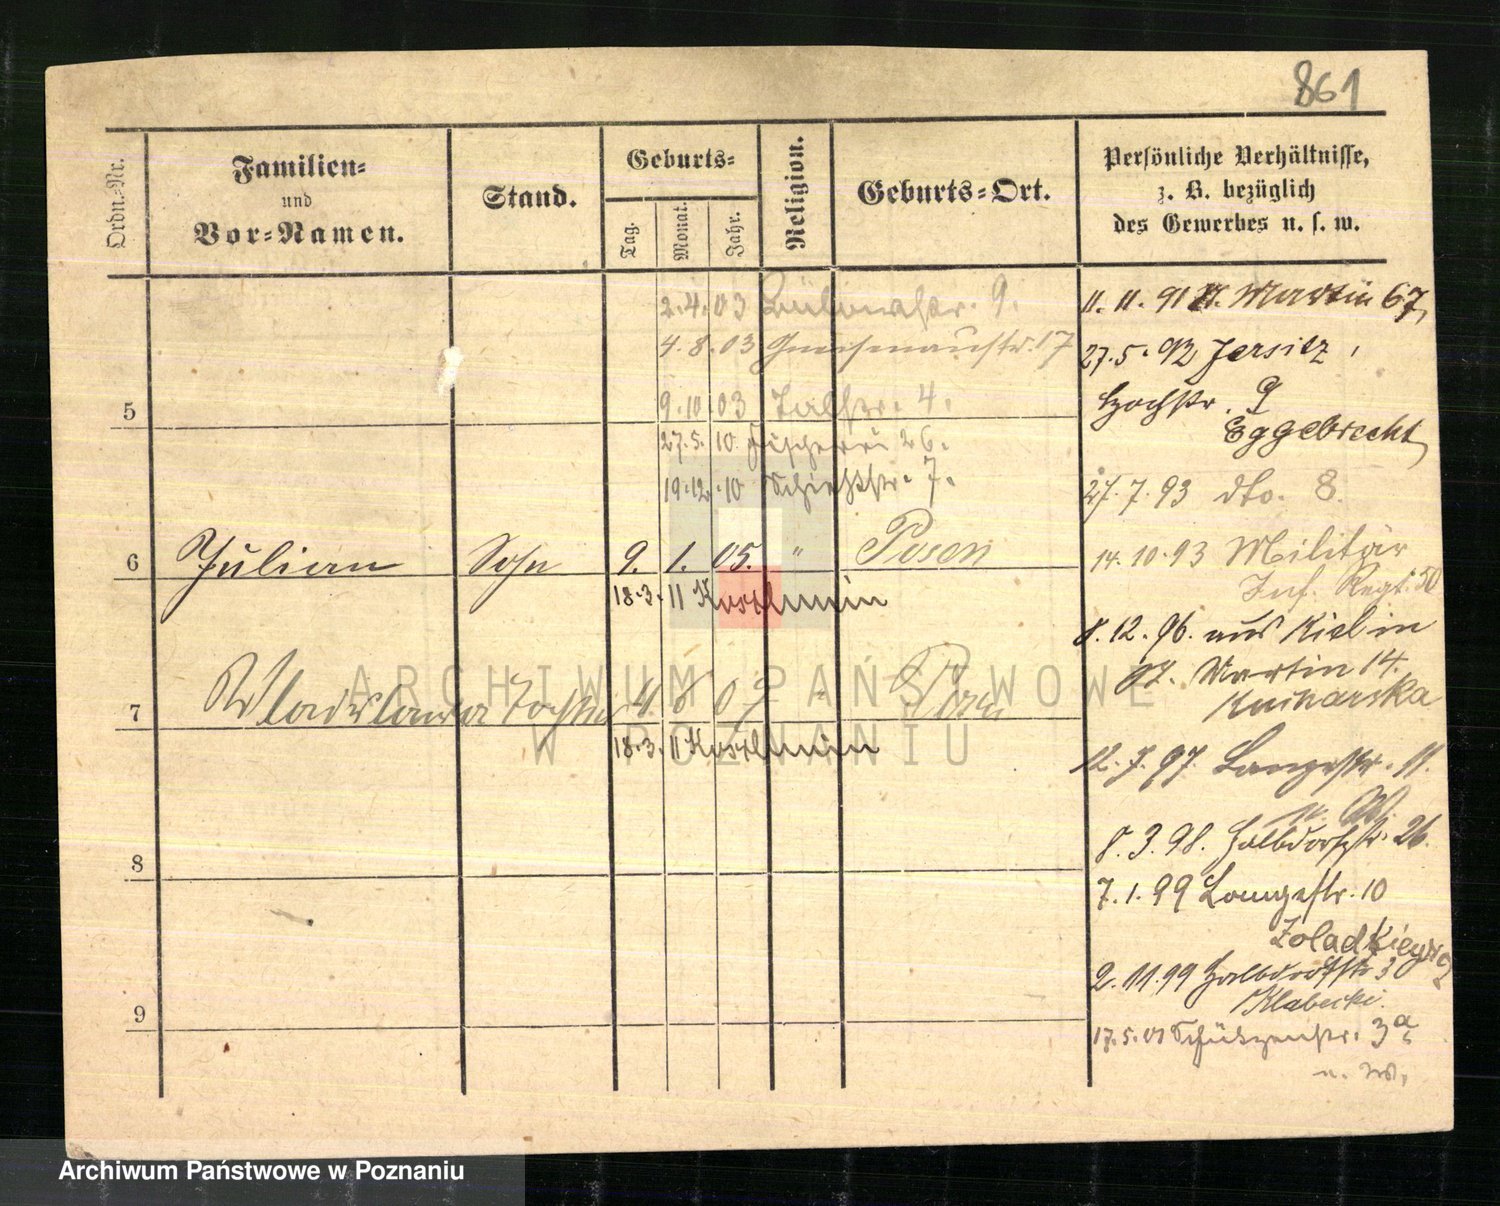 861
Ordn.-Nr.
Familien-
und
Vor-Namen.
Stand.
Geburts-
Tag.
Monat.
Jahr.
Religion.
Geburts-Ort.
Persönliche Verhältnisse,
z. B. bezüglich
des Gewerbes u. s. w.
2.4.03 Bülowstr. 9.
4.8.03 Gneisenaustr. 17
5
9.10.03 Talstr. 4.
27.5.10 Fischerei 26.
19.12.10 Schießstr. 7.
6 Julian Sohn 9. 1. 05. " Posen
18.3.11 Koschmin
7 Wladislawa Tochter 4 6 07 "
18.3.11 Koschmin
8
9
11.11.91 St. Martin 67,
27.5.92 Jersitz,
Hochstr. 9
Eggebrecht
27.7.93 dto. 8.
14.10.93 Militär
Inf. Regt. 50
8.12.96. aus Kiel in
St. Martin 14.
12.7.97. Langestr. 11.
8.3.98. Halbdorfstr. 26.
7.1.99 Langestr. 10
2.11.99 Halbdorfstr 3
Klabecki.
17.5.01 Schützenstr. 3a
ARCHIWUM PAŃSTWOWE
W POZNANIU
Archiwum Państwowe w Poznaniu